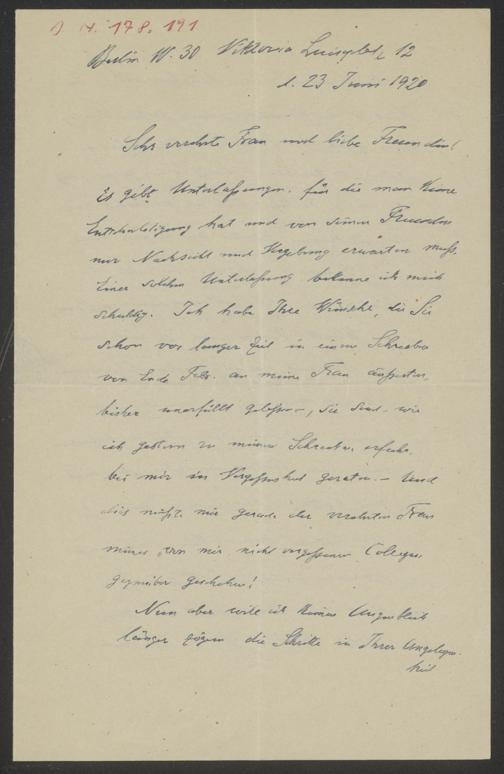 J. N. 178.191
Berlin W. 30 Viktoria Luiseplatz 12
d. 23 Juni 1920
Sehr verehrte Frau und liebe Freundin!
Es gibt Unterlassungen, für die man keine
Entschuldigung hat und von seinen Freunden
nur Nachsicht und Vergebung erwarten muß.
Einer solchen Unterlassung bekenne ich mich
schuldig. Ich habe Ihre Wünsche, die Sie
schon vor langer Zeit in einem Schreiben
von Ende Febr. an meine Frau äußerten,
bisher unerfüllt gelassen, sie sind, wie
ich gestern zu meinem Schrecken erfahre,
bei mir in Vergessenheit geraten. – Und
dies mußte mir gerade der verehrten Frau
meines von mir nicht vergessenen Collegen
gegenüber geschehen!
Nun aber will ich keinen Augenblick
länger zögern die Schritte in Ihrer Angelegen-
heit